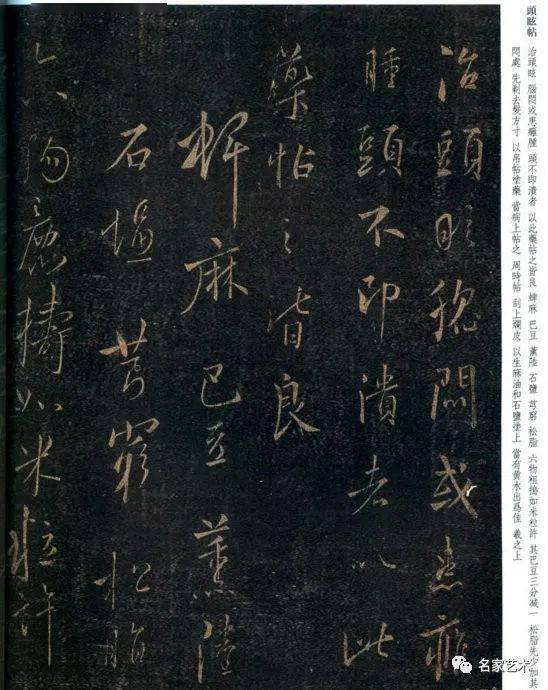 頭眩帖
治頭眩 腦悶或患癰腫 頭不即潰者 以此藥帖之皆良 蜱麻 巴豆 薰陸 石鹽 芎窮 松脂 六物粗搗如米粒許 其巴豆三分減一 松脂先少加其
悶處 先剃去髮方寸 以帛帖塗藥 當病上帖之 周時帖 刮上爛皮 以生麻油和石鹽塗上 當有黃水出爲佳 羲之上
治頭眩䐉悶或患癰
腫頭不即潰者以此
藥帖之皆良
蜱麻巴豆薰陸
石鹽芎窮松脂
六物麁擣如米粒許
名家艺术